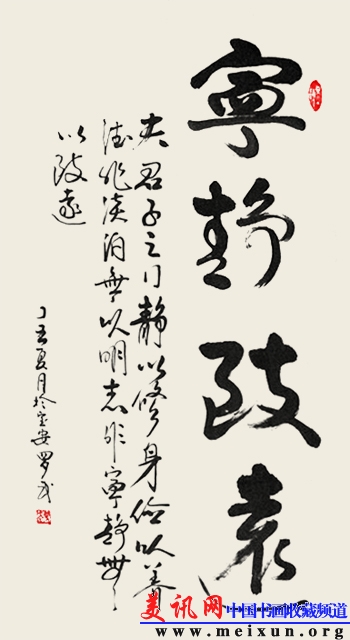 寧静致遠
夫君子之行静以修身儉以養
德非淡泊無以明志非寧静無
以致遠
丁亥夏月於宝安罗
美讯网 中国书画收藏频道
www.meixun.org